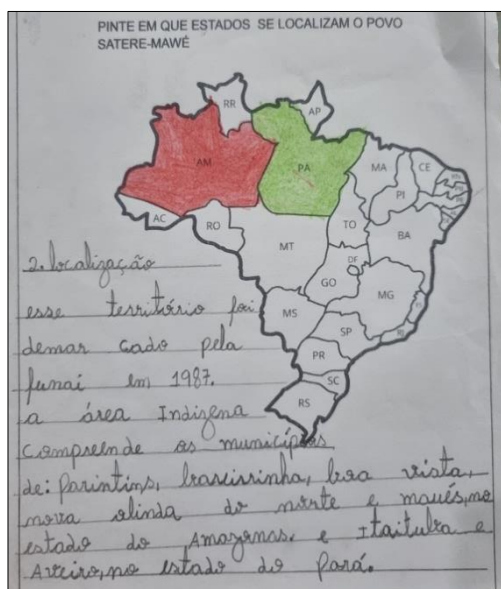 PINTE EM QUE ESTADOS SE LOCALIZAM O POVO
SATERE-MAWÉ
RR
AP
AM
PA
MA
CE
RN
PI
AC
RO
TO
BA
MT
DF
GO
MG
MS
SP
RJ
PR
SC
RS
2. localização
esse território foi
demar cado pela
funai em 1987.
a área Indigena
Compreende os municípios
de: parintins, barreirinha, boa vista,
nova olinda do norte e maués, no
estado do Amazonas. e Itaituba e
Aveiro, no estado do Pará.